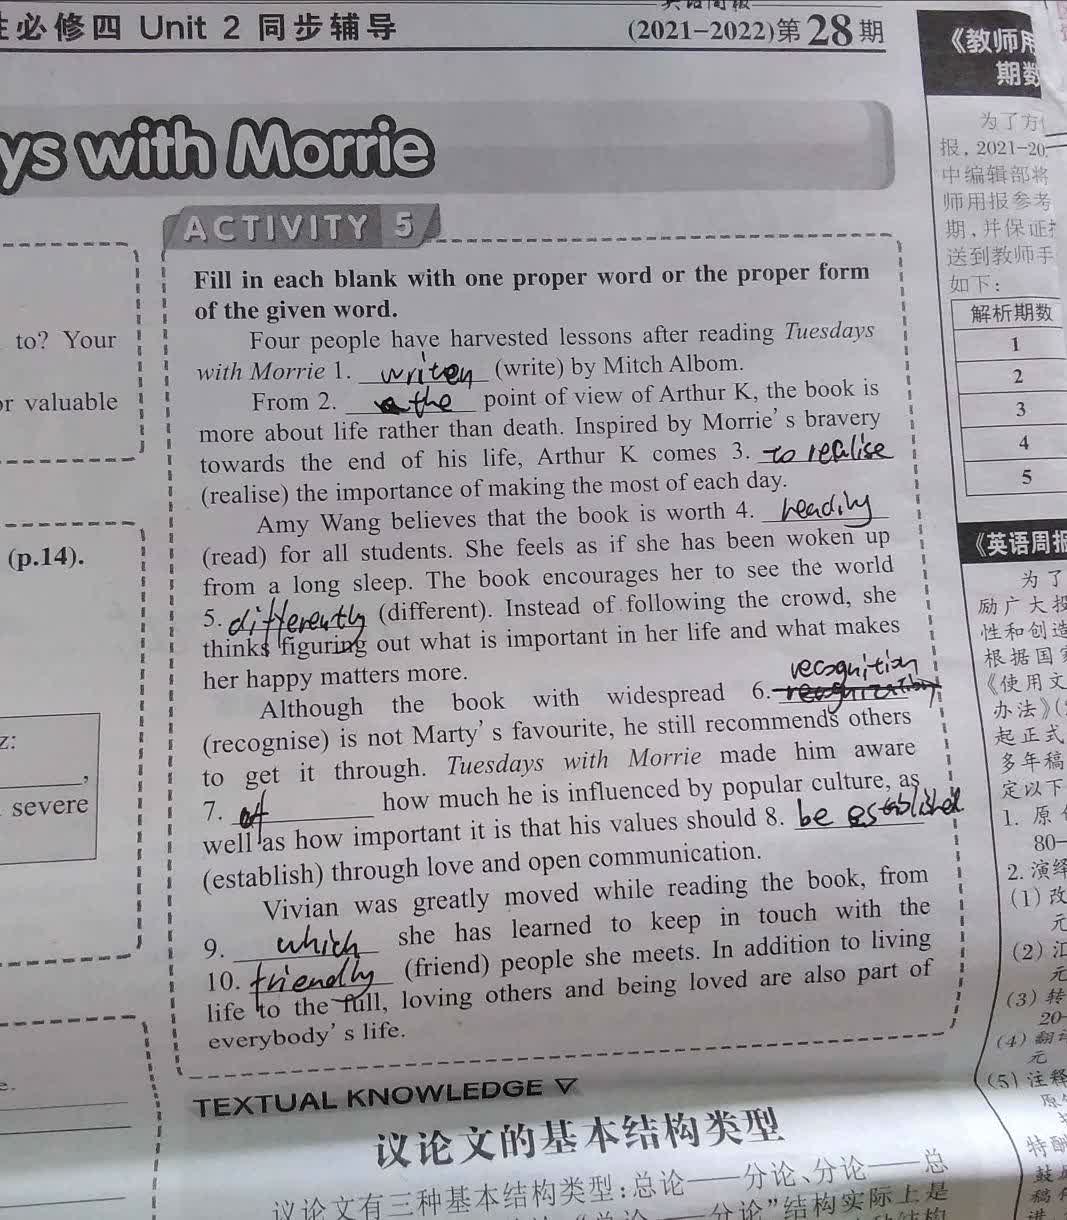 必修四 Unit 2 同步辅导
(2021-2022)第28期
ys with Morrie
to? Your
or valuable
(p.14).
z:
,
severe
e.
ACTIVITY 5
Fill in each blank with one proper word or the proper form
of the given word.
Four people have harvested lessons after reading Tuesdays
with Morrie 1. writen (write) by Mitch Albom.
From 2. the point of view of Arthur K, the book is
more about life rather than death. Inspired by Morrie's bravery
towards the end of his life, Arthur K comes 3. to realise
(realise) the importance of making the most of each day.
Amy Wang believes that the book is worth 4. reading
(read) for all students. She feels as if she has been woken up
from a long sleep. The book encourages her to see the world
5. differently (different). Instead of following the crowd, she
thinks figuring out what is important in her life and what makes
her happy matters more.
recognition
Although the book with widespread 6.
(recognise) is not Marty's favourite, he still recommends others
to get it through. Tuesdays with Morrie made him aware
7. of how much he is influenced by popular culture, as
well as how important it is that his values should 8. be established
(establish) through love and open communication.
Vivian was greatly moved while reading the book, from
9. which she has learned to keep in touch with the
10. friendly (friend) people she meets. In addition to living
life to the full, loving others and being loved are also part of
everybody's life.
TEXTUAL KNOWLEDGE
议论文的基本结构类型
议论文有三种基本结构类型:总论——分论、分论——总
——分论”结构实际上是
《教师用
期数
为了方
报,2021-20
中编辑部将
师用报参考
期,并保证
送到教师手
如下:
解析期数
1
2
3
4
5
《英语周报
为了
励广大投
性和创造
根据国
《使用文
办法》(
起正式
多年稿
定以下
1. 原
80-
2. 演绎
(1) 改
元
(2) 汇
元
(3) 转
20-
(4) 翻
元
(5) 注释
原
特酬
鼓
稿